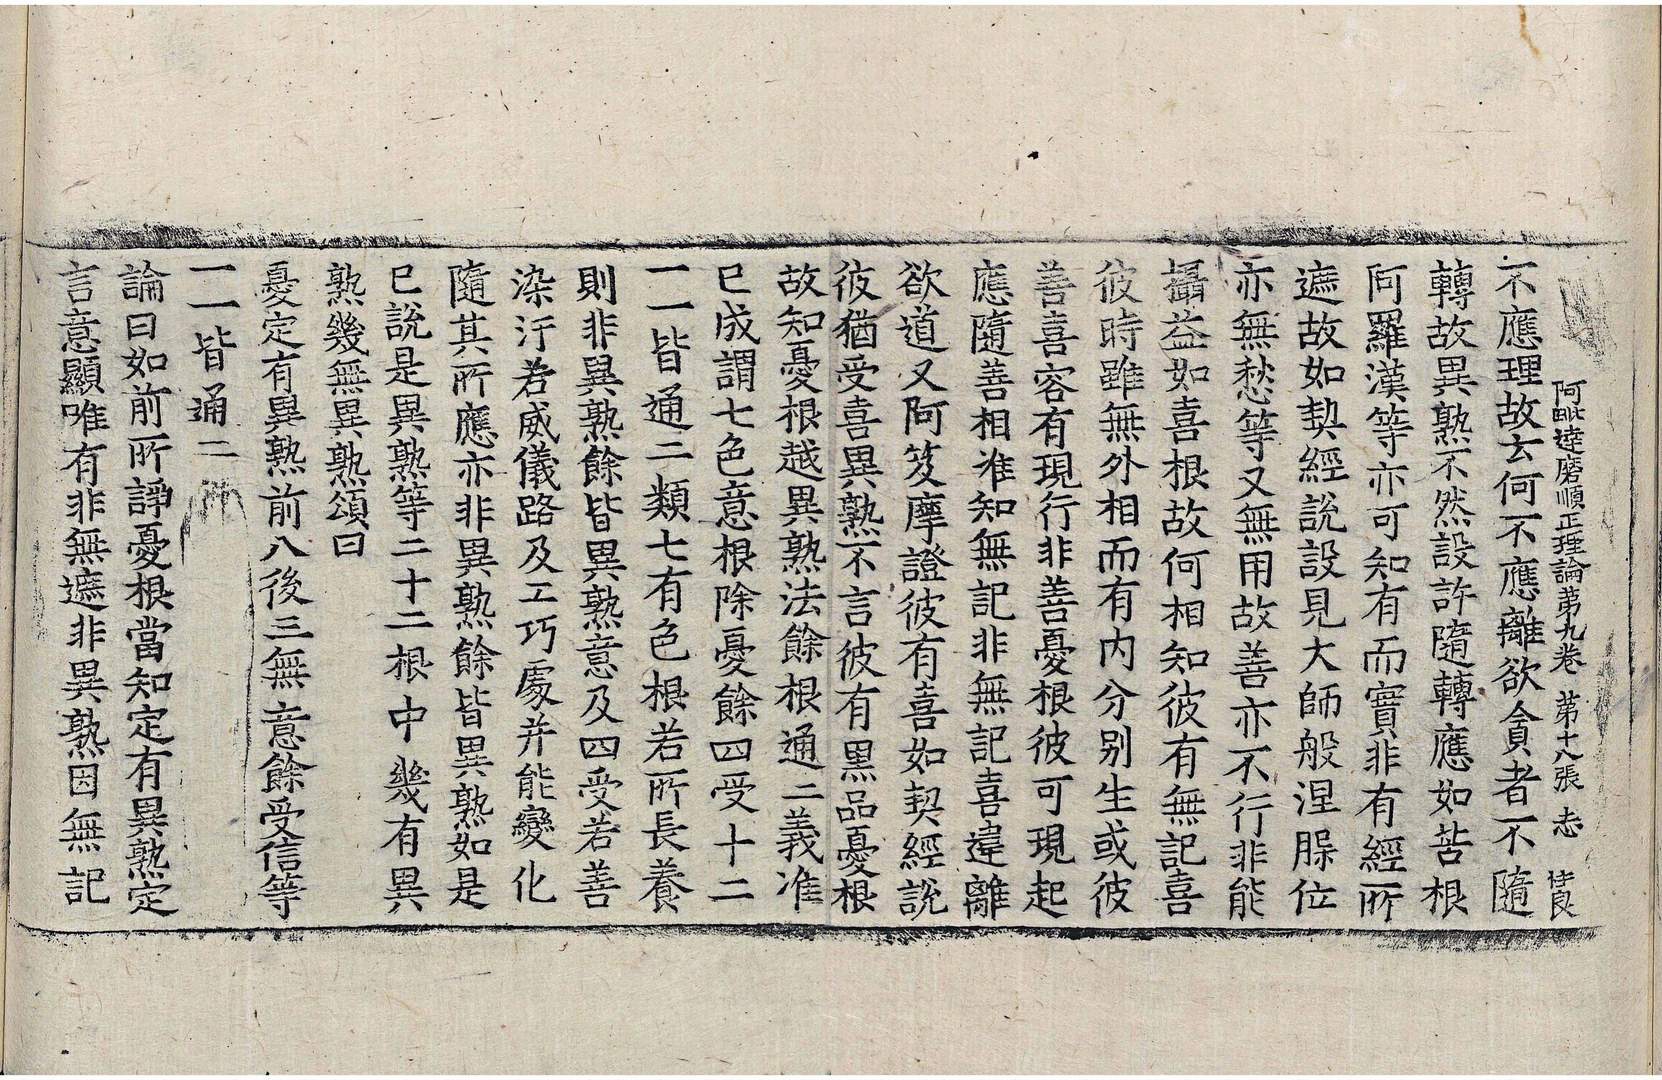 阿毗達磨順正理論第九卷 第十八張 志
不應理故云何不應離欲貪者不隨
轉故異熟不然設許隨轉應如苦根
阿羅漢等亦可知有而實非有經所
遮故如契經說設見大師般涅槃位
亦無愁等又無用故善亦不行非能
攝益如喜根故何相知彼有無記喜
彼時雖無外相而有內分別生或彼
善喜容有現行非善憂根彼可現起
應隨善相准知無記非無記喜違離
欲道又阿笈摩證彼有喜如契經說
彼猶受喜異熟不言彼有黑品憂根
故知憂根越異熟法餘根通二義准
已成謂七色意根除憂餘四受十二
一一皆通二類七有色根若所長養
則非異熟餘皆異熟意及四受若善
染汙若威儀路及工巧處并能變化
隨其所應亦非異熟餘皆異熟如是
已說是異熟等二十二根中幾有異
熟幾無異熟頌曰
憂定有異熟前八後三無意餘受信等
一一皆通二
論曰如前所諍憂根當知定有異熟定
言意顯唯有非無遮非異熟因無記